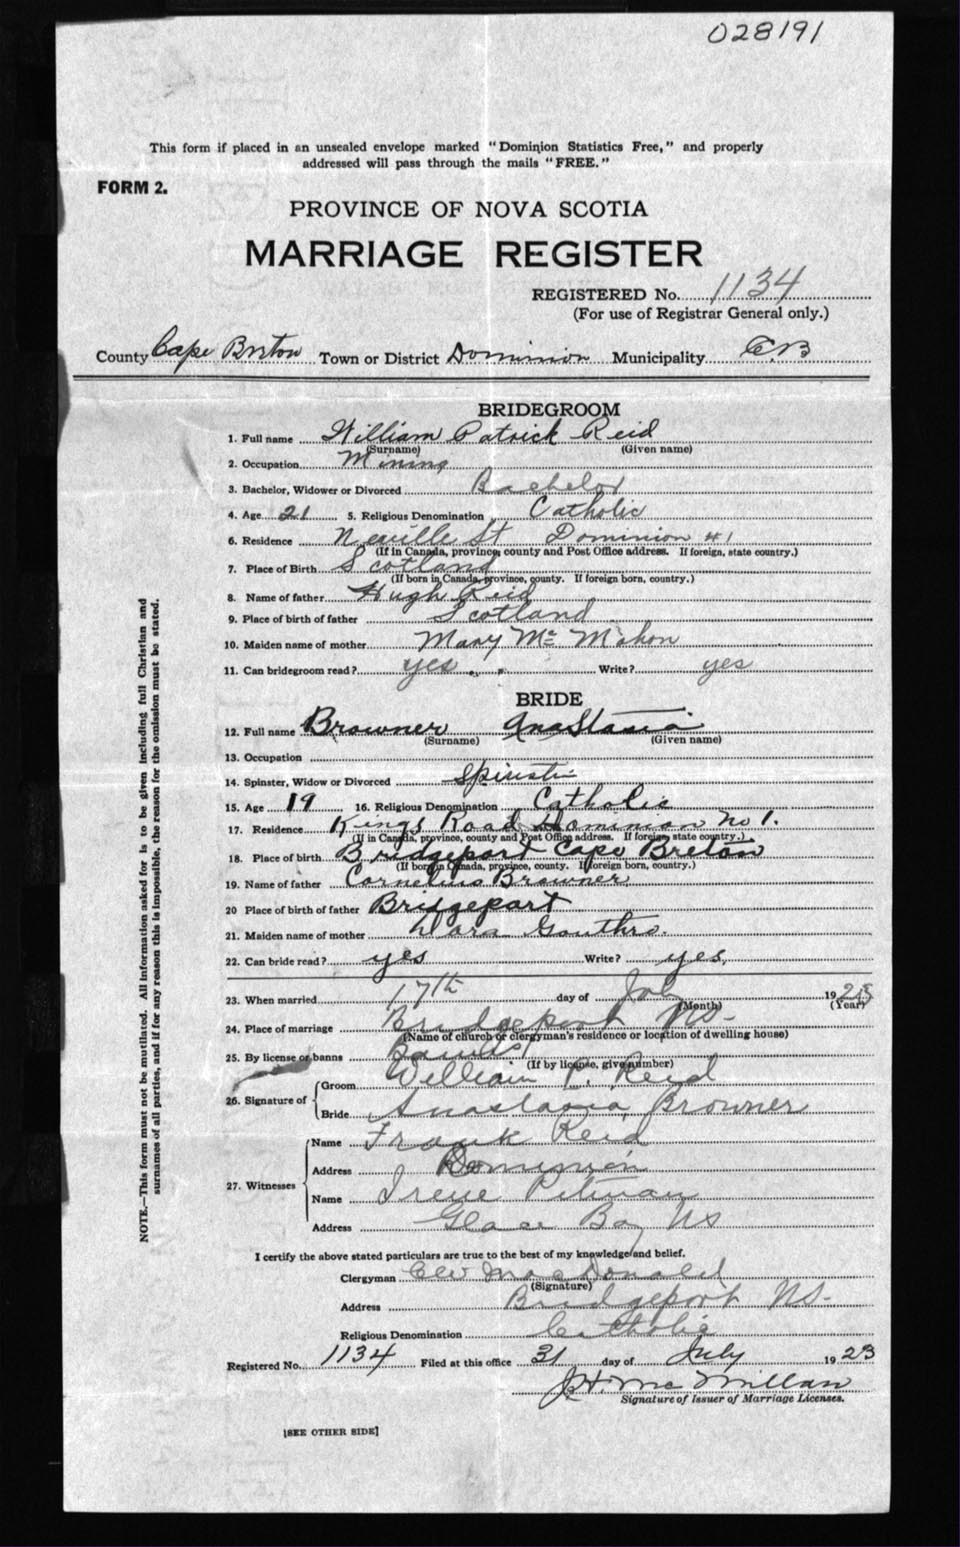 028191
This form if placed in an unsealed envelope marked "Dominion Statistics Free," and properly
addressed will pass through the mails "FREE."
FORM 2.
PROVINCE OF NOVA SCOTIA
MARRIAGE REGISTER
REGISTERED No. 1134
(For use of Registrar General only.)
County Cape Breton Town or District Dominion Municipality C.B
BRIDEGROOM
1. Full name William Patrick Reid
(Surname) (Given name)
2. Occupation Mining
3. Bachelor, Widower or Divorced Bachelor
4. Age 21 5. Religious Denomination Catholic
6. Residence Neville St Dominion #1
(If in Canada, province, county and Post Office address. If foreign, state country.)
7. Place of Birth Scotland
(If born in Canada, province, county. If foreign born, country.)
8. Name of father Hugh Reid
9. Place of birth of father Scotland
10. Maiden name of mother Mary Mc Mahon
11. Can bridegroom read? yes Write? yes
BRIDE
12. Full name Browner Anastasia
(Surname) (Given name)
13. Occupation
14. Spinster, Widow or Divorced Spinster
15. Age 19 16. Religious Denomination Catholic
17. Residence Kings Road Dominion No 1.
(If in Canada, province, county and Post Office address. If foreign state country.)
18. Place of birth Bridgeport Cape Breton
(If born in Canada, province, county. If foreign born, country.)
19. Name of father Cornelius Browner
20 Place of birth of father Bridgeport
21. Maiden name of mother Gouthro.
22. Can bride read? yes Write? yes,
23. When married 17th day of July 1923
(Month) (Year)
24. Place of marriage Bridgeport NS-
(Name of church or clergyman's residence or location of dwelling house)
25. By license or banns Banns
(If by license, give number)
26. Signature of Groom William P. Reid
Bride Anastasia Browner
27. Witnesses Name Frank Reid
Address Dominion
Name Irene Pitman
Address Glace Bay NS
I certify the above stated particulars are true to the best of my knowledge and belief.
Clergyman MacDonald
(Signature)
Address Bridgeport NS-
Religious Denomination Catholic
Registered No. 1134 Filed at this office 31 day of July 1923
J.H. McMillan
Signature of Issuer of Marriage Licenses.
[SEE OTHER SIDE]
NOTE.—This form must not be mutilated. All information asked for is to be given including full Christian and
surnames of all parties, and if for any reason this is impossible, the reason for the omission must be stated.